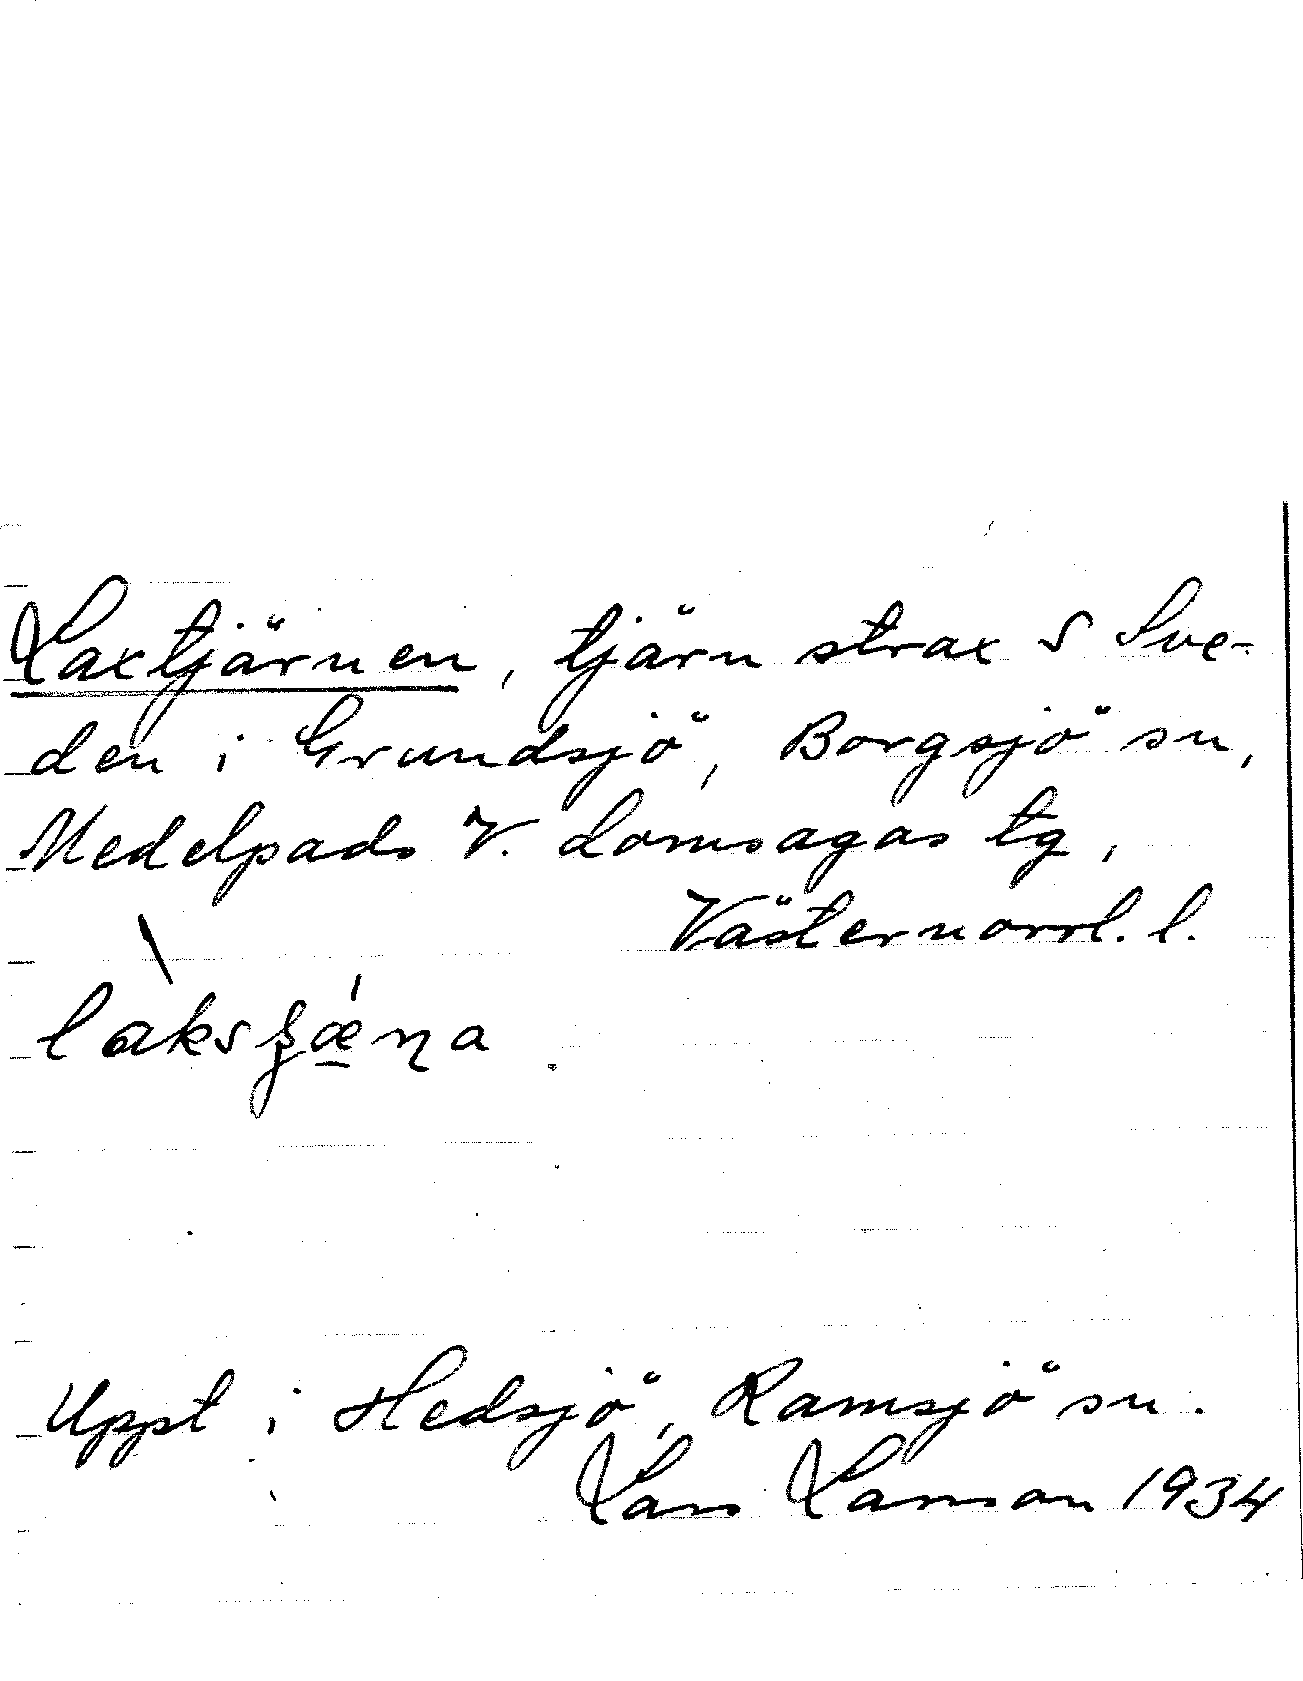 Laxtjärnen, tjärn strax S Sve-
den i Grundsjö, Borgsjö sn,
Medelpads V. domsagas tg,
Västernorrl. l.
Uppt i Hedsjö, Ramsjö sn.
Lars Larsson 1934